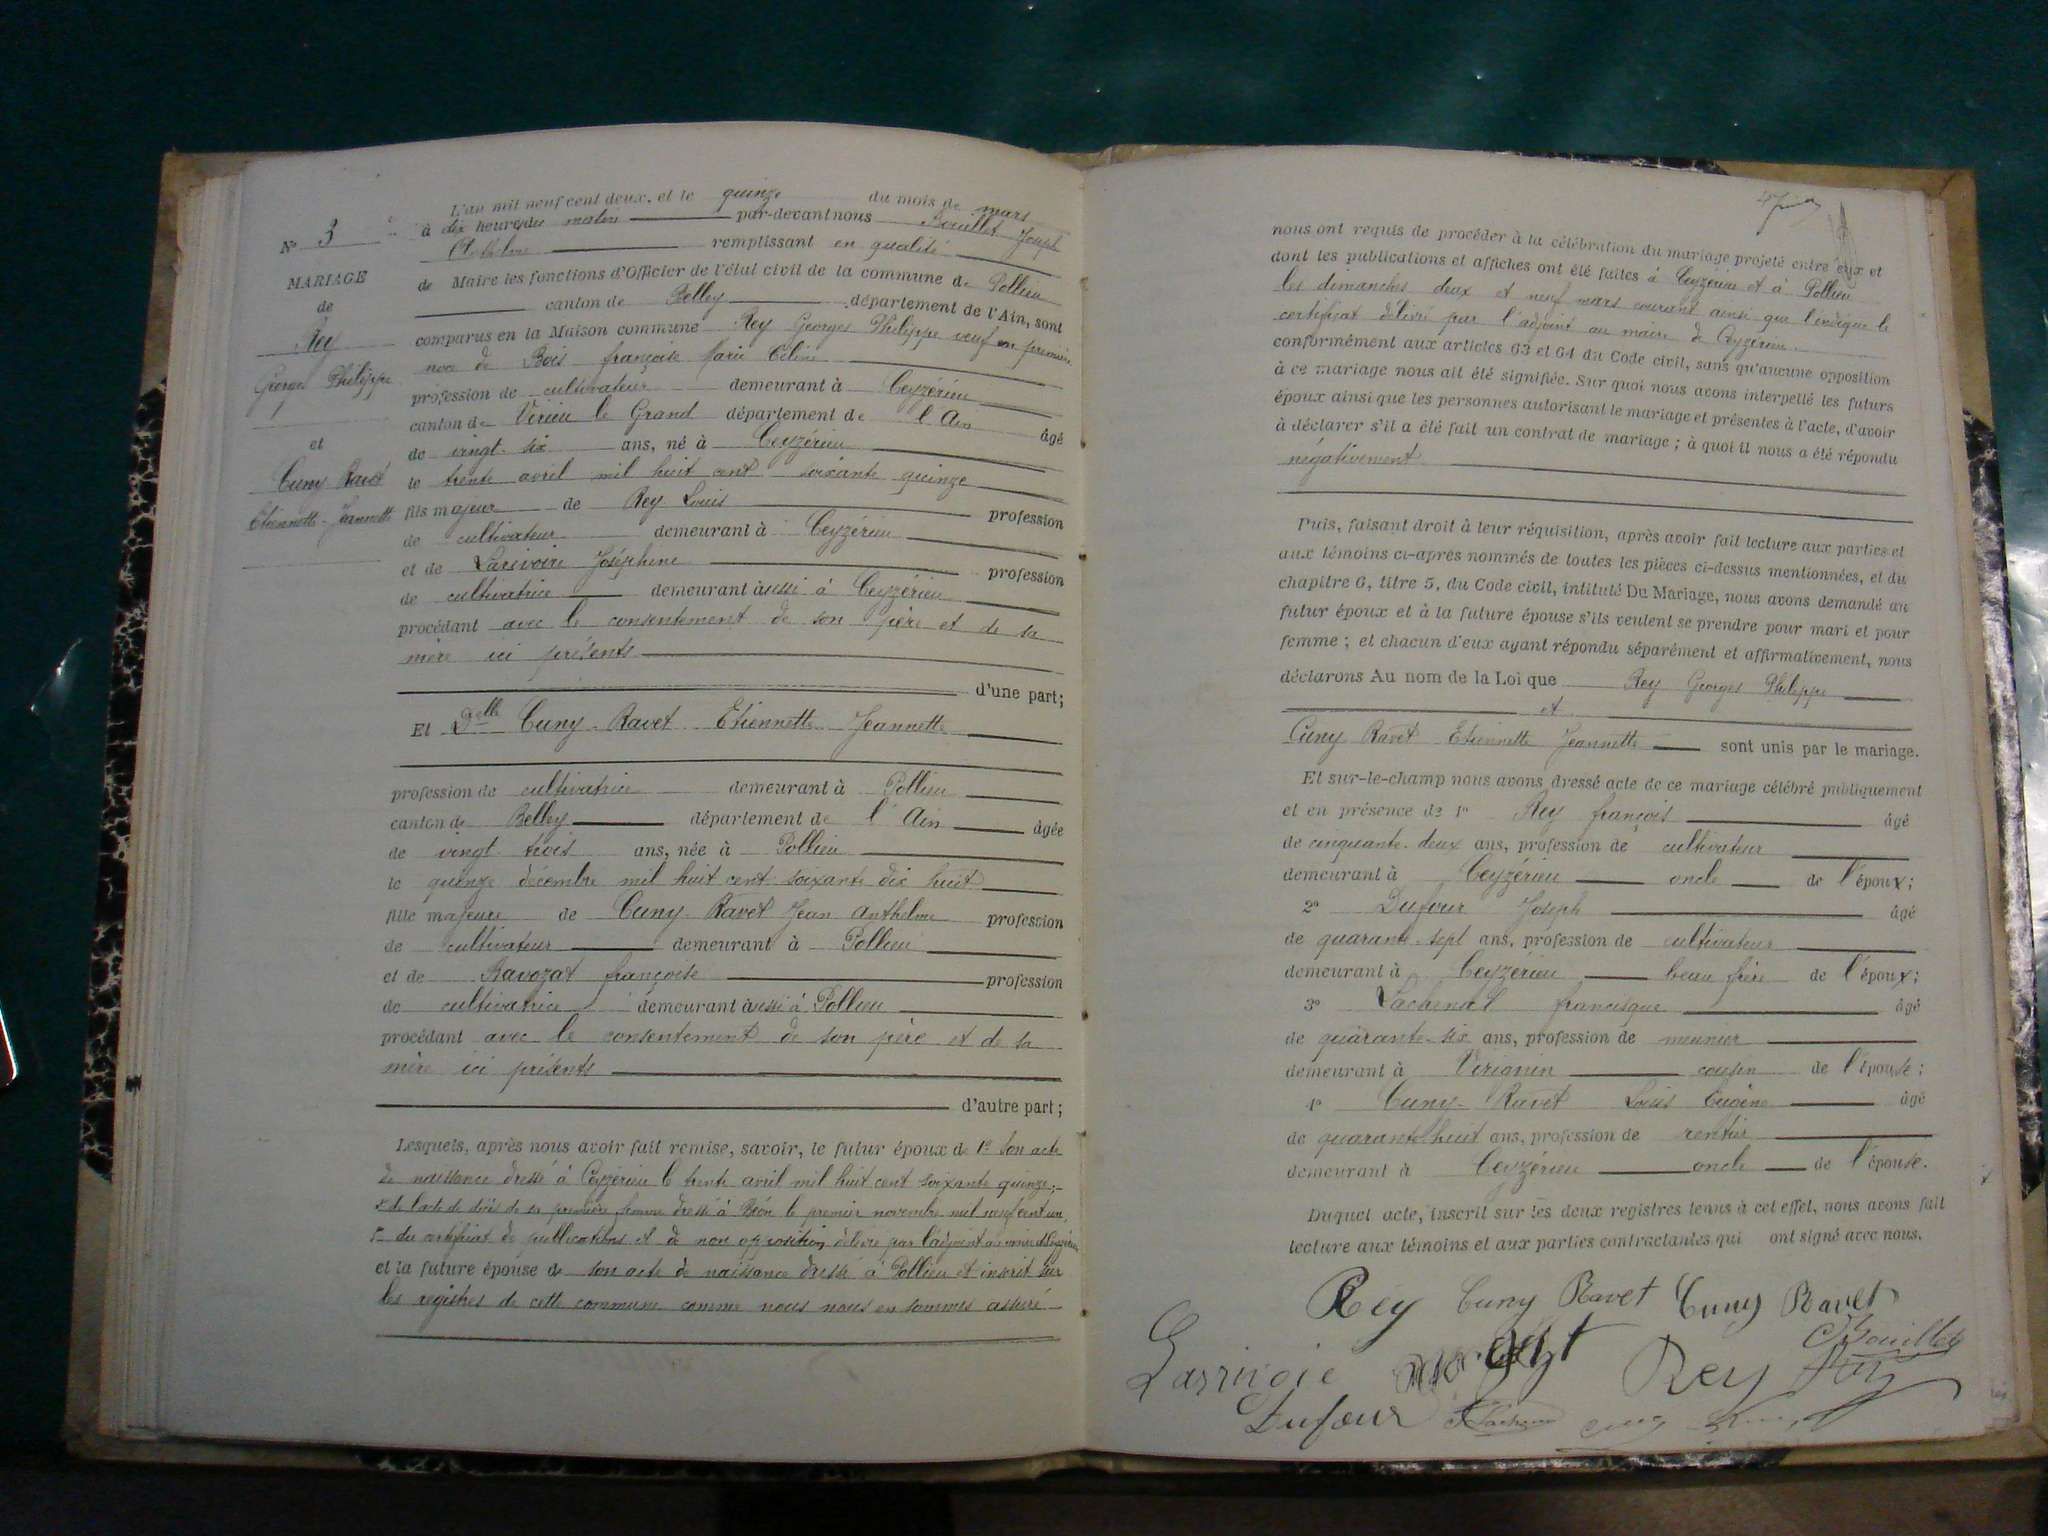 N° 3
MARIAGE
de
Rey
Georges Philippe
et
Cuny Ravet
Etiennette-Jeannette
L'an mil neuf cent deux, et le quinze du mois de mars
à dix heures du matin par-devant nous Bouillet Joseph
Anthelme remplissant en qualité
de Maire les fonctions d'Officier de l'état civil de la commune de Pollieu
canton de Belley département de l'Ain, sont
comparus en la Maison commune Rey Georges Philippe veuf en première
noce de Bois françoise Marie Céline
profession de cultivateur demeurant à Ceyzérieu
canton de Virieu le Grand département de l'Ain âgé
de vingt-six ans, né à Ceyzérieu
le trente avril mil huit cent soixante quinze
fils majeur de Rey Louis profession
de cultivateur demeurant à Ceyzérieu
et de Joséphine profession
de cultivatrice demeurant aussi à Ceyzérieu
procédant avec le consentement de son père et de sa
mère ici présents
d'une part;
Et Delle Cuny-Ravet Etiennette Jeannette
profession de cultivatrice demeurant à Pollieu
canton de Belley département de l'Ain âgée
de vingt trois ans, née à Pollieu
le quinze décembre mil huit cent soixante dix huit
fille majeure de Cuny-Ravet Jean Anthelme profession
de cultivateur demeurant à Pollieu
et de Ravozat françoise profession
de cultivatrice demeurant aussi à Pollieu
procédant avec le consentement de son père et de sa
mère ici présents
d'autre part;
Lesquels, après nous avoir fait remise, savoir, le futur époux de 1° son acte
de naissance dressé à Ceyzérieu le trente avril mil huit cent soixante quinze;
2° de l'acte de décès de sa première femme dressé à Béon le premier novembre mil neuf cent un,
3° du certificat de publications et de non opposition délivré par l'adjoint au maire de Ceyzérieu
et la future épouse de son acte de naissance dressé à Pollieu et inscrit sur
les registres de cette commune comme nous nous en sommes assuré
nous ont requis de procéder à la célébration du mariage projeté entre eux et
dont les publications et affiches ont été faites à Ceyzérieu et à Pollieu
les dimanches deux et neuf mars courant ainsi que l'indique le
certificat délivré par l'adjoint au maire de Ceyzérieu
conformément aux articles 63 et 64 du Code civil, sans qu'aucune opposition
à ce mariage nous ait été signifiée. Sur quoi nous avons interpellé les futurs
époux ainsi que les personnes autorisant le mariage et présentes à l'acte, d'avoir
à déclarer s'il a été fait un contrat de mariage ; à quoi il nous a été répondu
négativement
Puis, faisant droit à leur réquisition, après avoir fait lecture aux parties et
aux témoins ci-après nommés de toutes les pièces ci-dessus mentionnées, et du
chapitre 6, titre 5, du Code civil, intitulé Du Mariage, nous avons demandé au
futur époux et à la future épouse s'ils veulent se prendre pour mari et pour
femme ; et chacun d'eux ayant répondu séparément et affirmativement, nous
déclarons Au nom de la Loi que Rey Georges Philippe
et
Cuny Ravet Etiennette Jeannette sont unis par le mariage.
Et sur-le-champ nous avons dressé acte de ce mariage célébré publiquement
et en présence de 1° Rey françois âgé
de cinquante-deux ans, profession de cultivateur
demeurant à Ceyzérieu oncle de l'époux;
2° Dufour Joseph âgé
de quarante-sept ans, profession de cultivateur
demeurant à Ceyzérieu beau frère de l'époux;
3° Lachenal francisque âgé
de quarante-six ans, profession de meunier
demeurant à Virignin cousin de l'épouse;
4° Cuny-Ravet Louis Eugène âgé
de quarante huit ans, profession de rentier
demeurant à Ceyzérieu oncle de l'épouse.
Duquel acte, inscrit sur les deux registres tenus à cet effet, nous avons fait
lecture aux témoins et aux parties contractantes qui ont signé avec nous.
Rey Cuny Ravet Cuny Ravet
Bouillet
Rey
Dufour